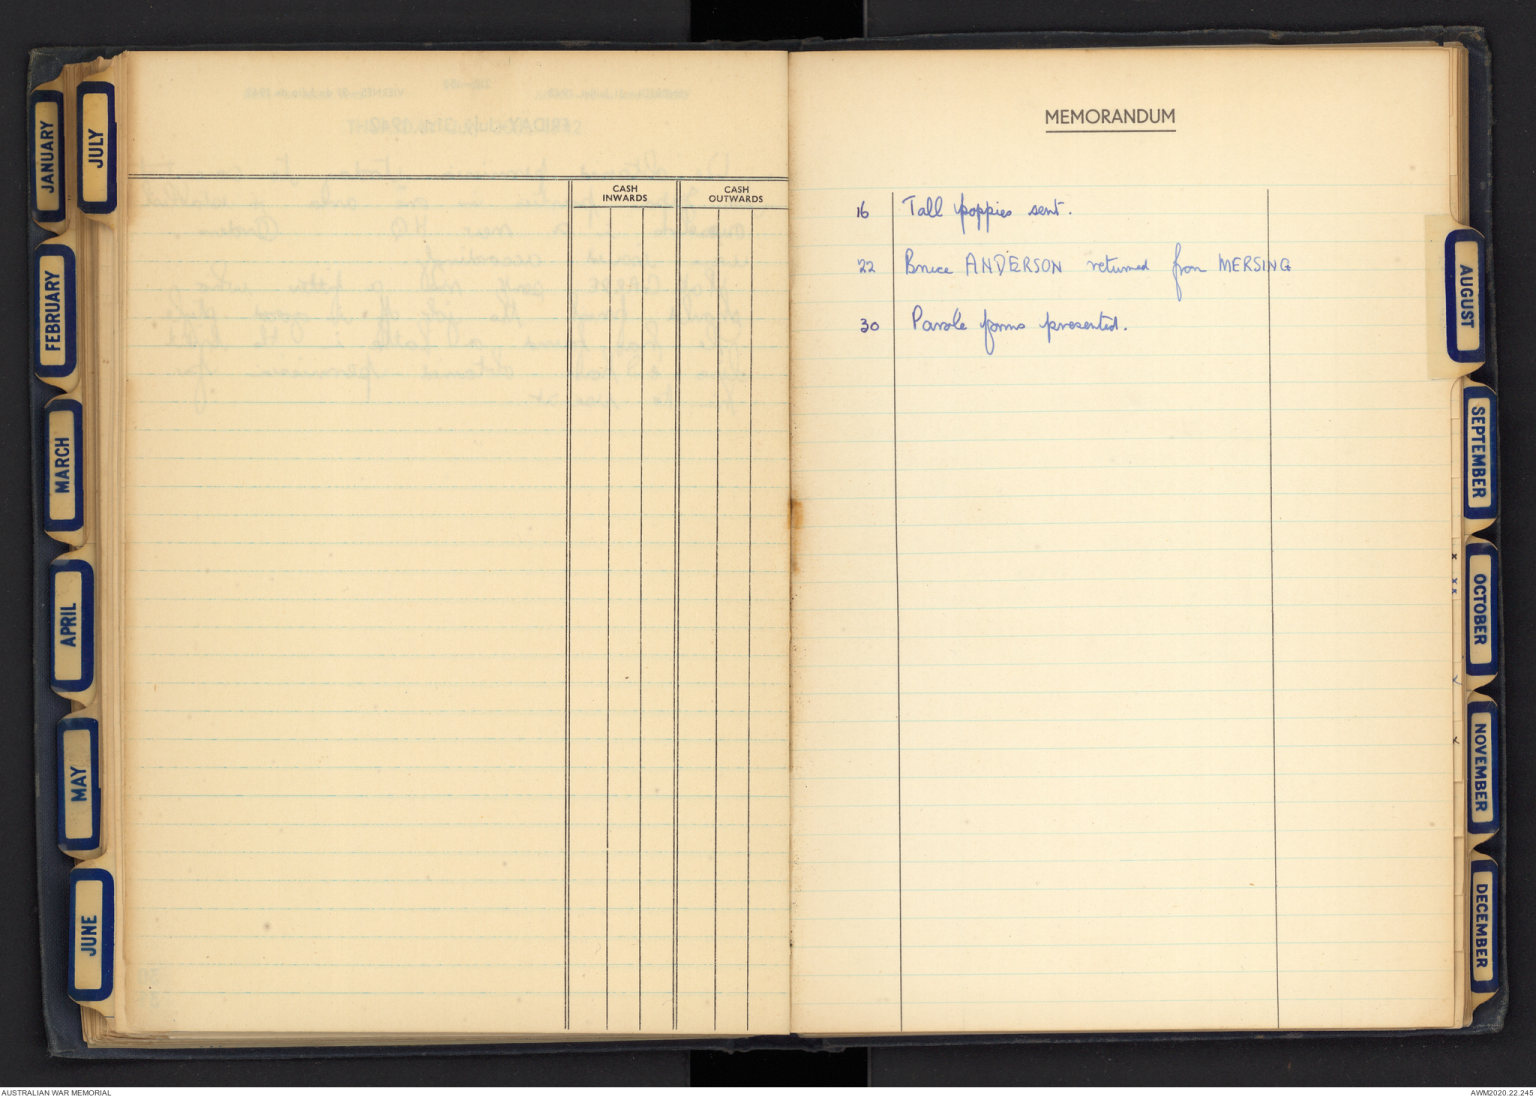 JANUARY
FEBRUARY
MARCH
APRIL
MAY
JUNE
JULY
CASH INWARDS
CASH OUTWARDS
MEMORANDUM
16 Tall poppies sent.
22 Bruce ANDERSON returned from MERSING
30 Parole forms presented.
AUGUST
SEPTEMBER
OCTOBER
NOVEMBER
DECEMBER
AUSTRALIAN WAR MEMORIAL
AWM2020.22.245